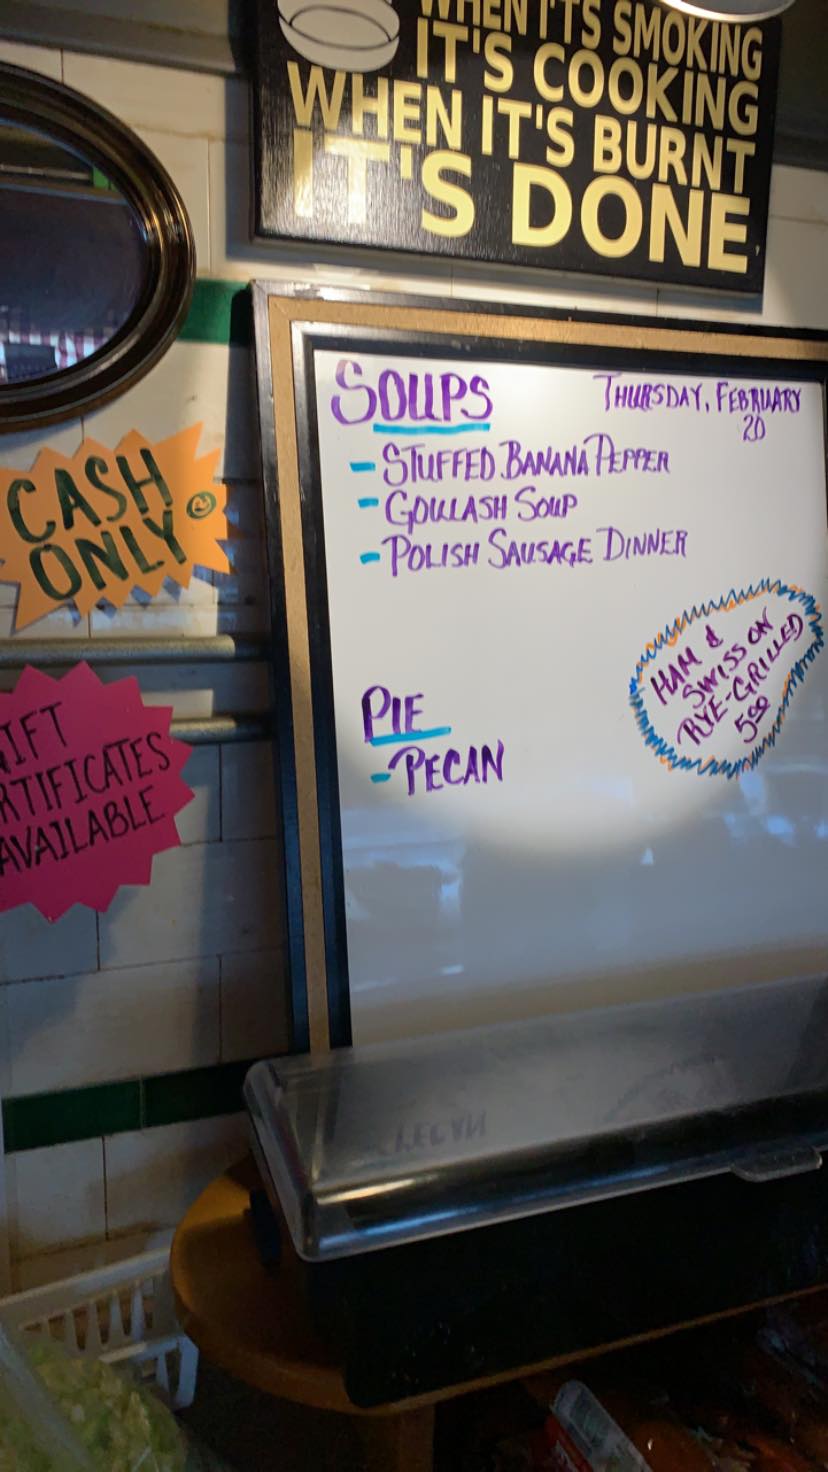 WHEN IT'S SMOKING
IT'S COOKING
WHEN IT'S BURNT
IT'S DONE
CASH
ONLY
GIFT
CERTIFICATES
AVAILABLE
SOUPS
THURSDAY, FEBRUARY
20
- STUFFED BANANA PEPPER
- GOULASH SOUP
- POLISH SAUSAGE DINNER
HAM &
SWISS ON
RYE-GRILLED
5.00
PIE
- PECAN